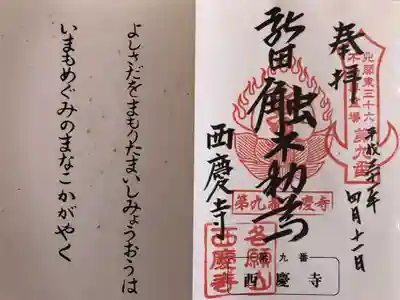 奉拝
北関東三十六
不動尊霊場
第九番
平成三十一年
四月十一日
新田触不動尊
第九番西慶寺
西慶寺
西慶寺
第九番
西慶寺
よしさだをまもりたまいしみょうおうは
いまもめぐみのまなこかがやく